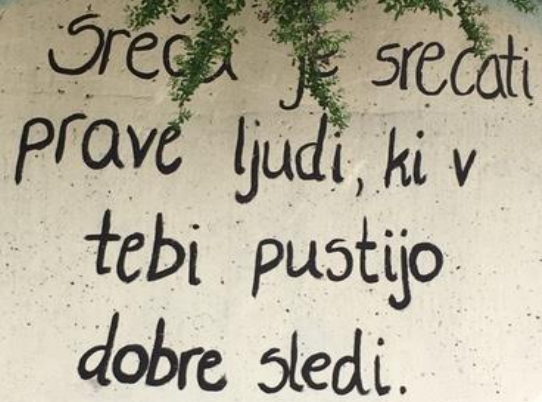 Sreča je srečati
prave ljudi, ki v
tebi pustijo
dobre sledi.